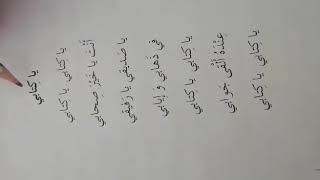 يا كِتابي
يا كِتابي يا كِتابي
أَنْتَ يا خَيْرَ صِحابي
يا صَديقي يا رَفيقي
في ذَهابي وَ إِيابي
يا كِتابي يا كِتابي
عِنْدَهُ أَلْقى جَوابي
يا كِتابي يا كِتابي